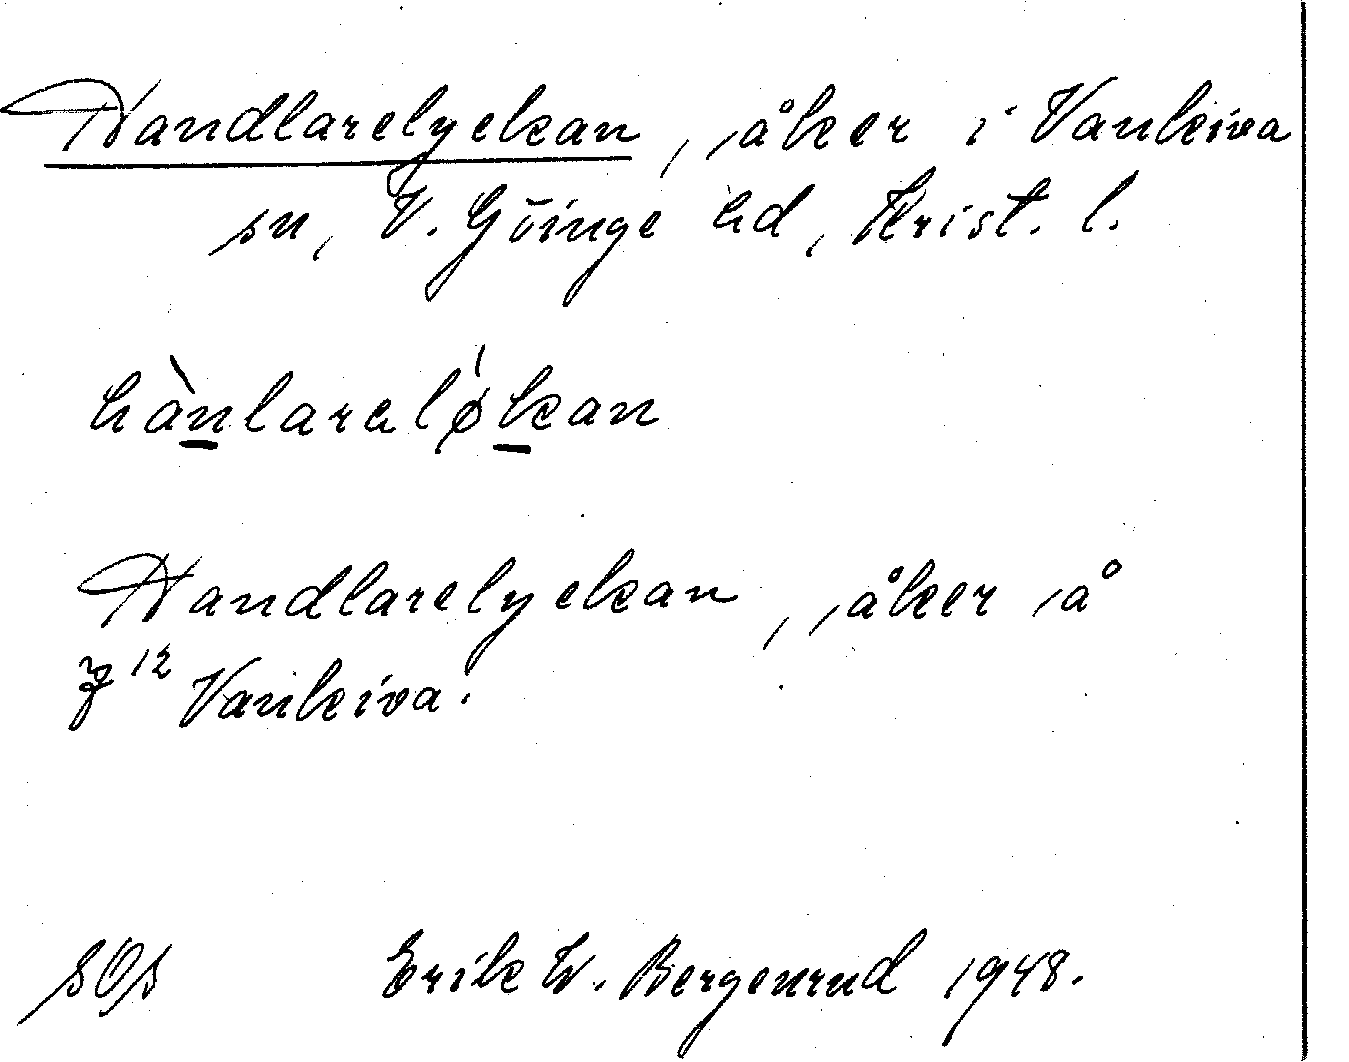 Handlarelyckan, åker i Vankiva
sn, V. Göinge hd, Krist. l.
hànlarelǿkan
Handlarelyckan, åker å
12 Vankiva.
Erik W. Bergenrud 1948.